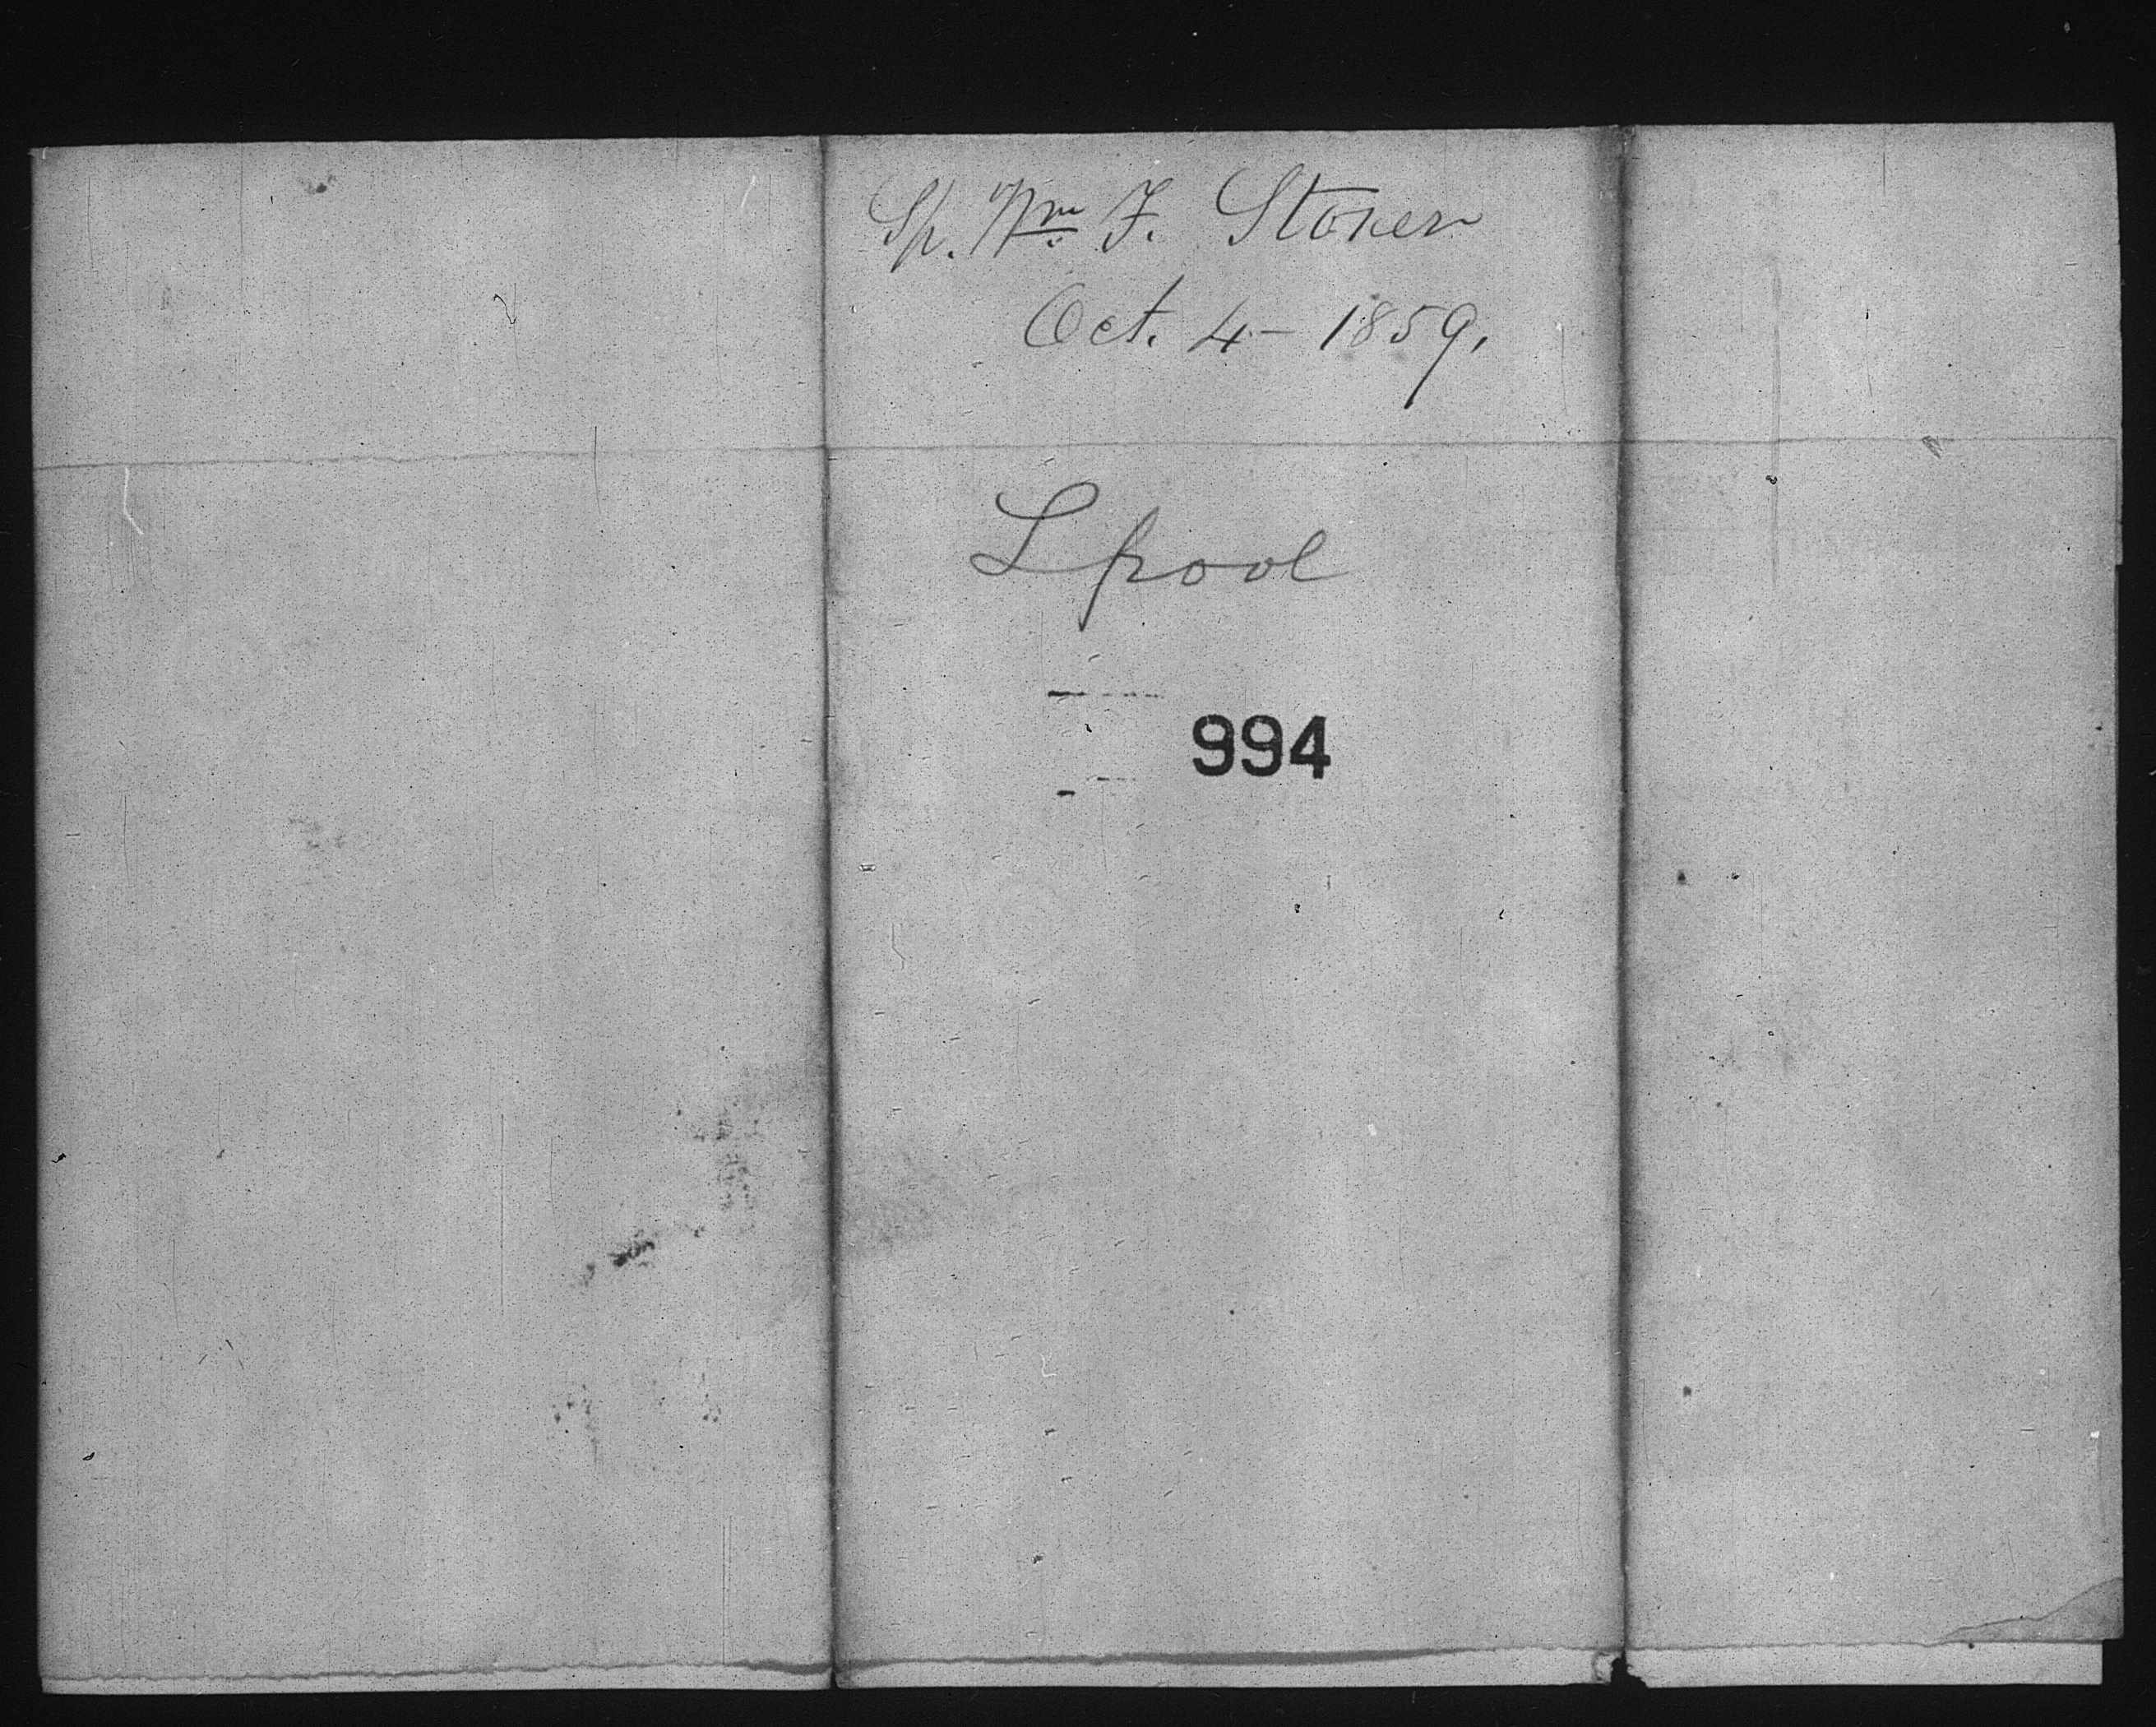 Sh. Wm. F. Storer
Oct. 4 - 1859.
Lpool
994